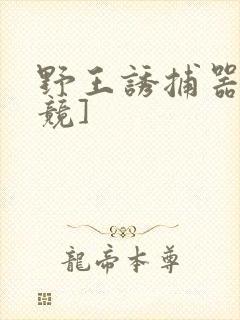 野王誘捕器
競]
龍帝本尊